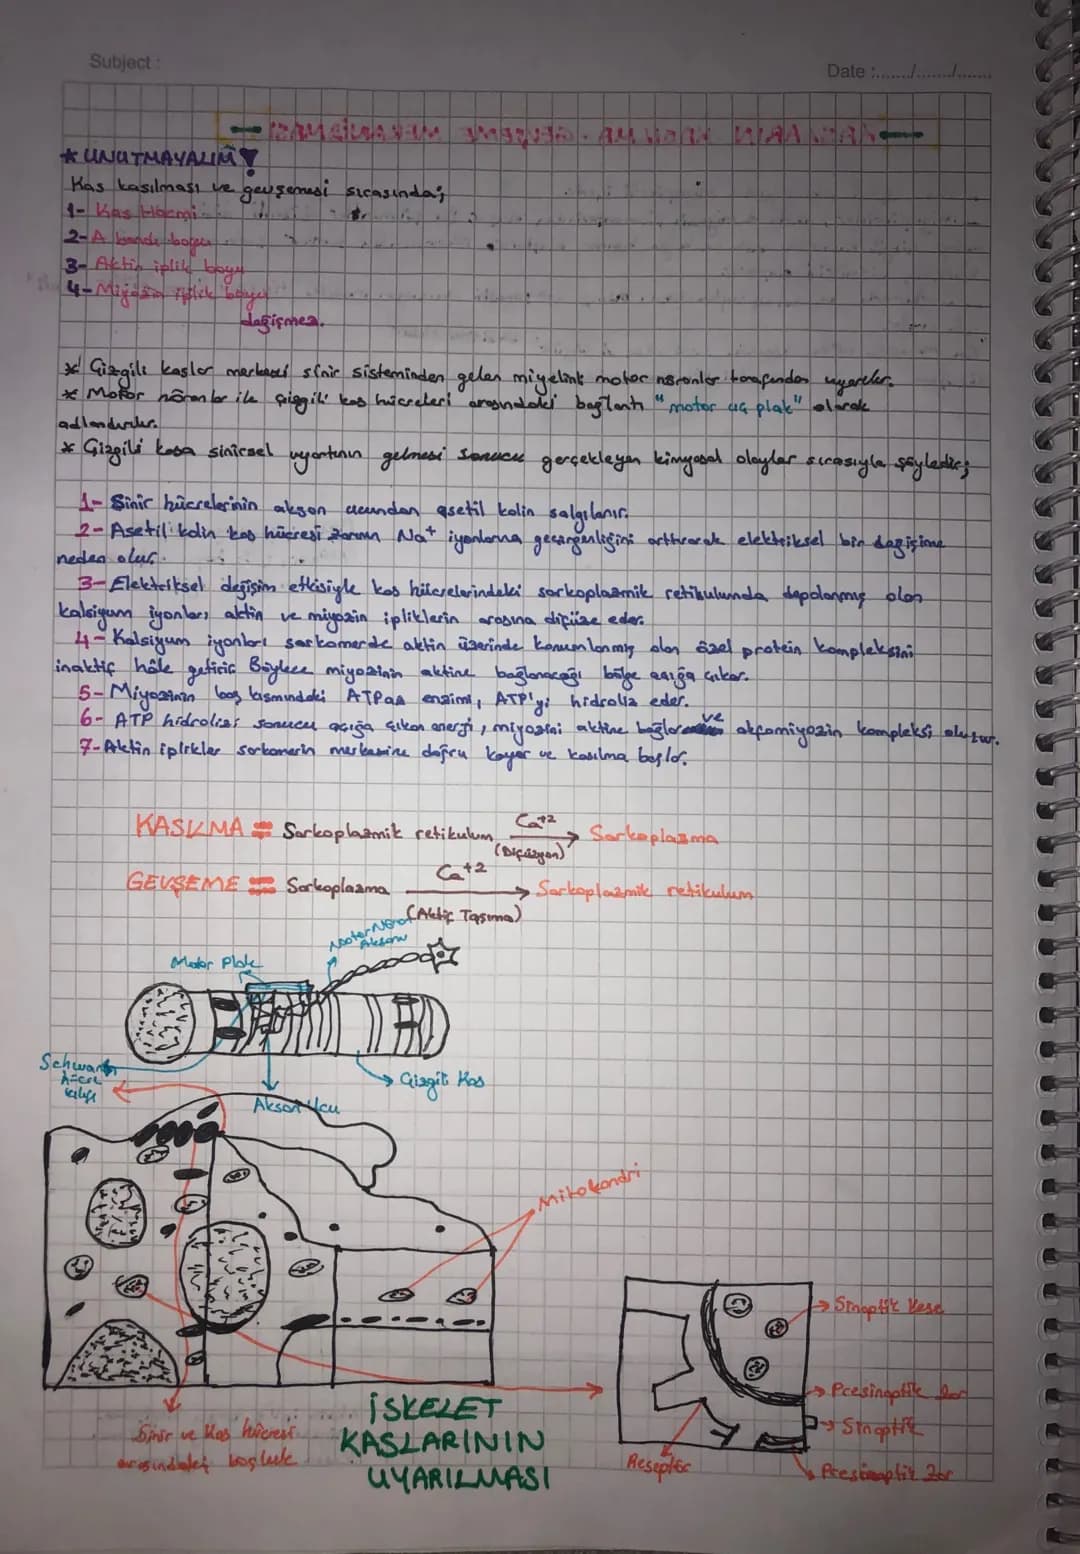 Subject :
Date :......./......./.......
* UNUTMAYALIM
Kas kasılması ve gevşemesi sırasında;
1- Kas Hacmi
2- A bandı boyu
3- Aktin iplik boyu
4- Miyozin iplik boyu
değişmez.
* Çizgili kaslar merkezi sinir sisteminden gelen miyelinli motor nöronlar tarafından uyarılır.
* Motor nöronlar ile çizgili kas hücreleri arasındaki bağlantı "motor uç plak" olarak
adlandırılır.
* Çizgili kasa sinirsel uyartının gelmesi sonucu gerçekleşen kimyasal olaylar sırasıyla şöyledir;
1- Sinir hücrelerinin akson ucundan asetil kolin salgılanır.
2- Asetil kolin kas hücresi zarının Na+ iyonlarına geçirgenliğini arttırarak elektriksel bir değişime
neden olur.
3- Elektriksel değişim etkisiyle kas hücrelerindeki sarkoplazmik retikulumda depolanmış olan
kalsiyum iyonları aktin ve miyozin ipliklerin arasına difüze eder.
4- Kalsiyum iyonları sarkomerde aktin üzerinde konumlanmış olan özel protein kompleksini
inaktif hâle getirir. Böylece miyozinin aktine bağlanacağı bölge açığa çıkar.
5- Miyozinin baş kısmındaki ATPaz enzimi, ATP'yi hidroliz eder.
6- ATP hidrolizi sonucu açığa çıkan enerji, miyozini aktine bağlar ve aktomiyozin kompleksi oluşur.
7- Aktin iplikler sarkomerin merkezine doğru kayar ve kasılma başlar.
KASILMA = Sarkoplazmik retikulum Ca+2 (Difüzyon) → Sarkoplazma
GEVŞEME = Sarkoplazma Ca+2 (Aktif Taşıma) → Sarkoplazmik retikulum
Motor Nöron
Aksonu
Motor Plak
Schwann
hücre
kılıfı
Çizgili Kas
Akson Ucu
Mitokondri
Sinaptik Kese
Presinaptik Zar
Sinaptik
Presinaptik Zar
Reseptör
Sinir ve Kas hücresi
arasındaki boşluk
İSKELET
KASLARININ
UYARILMASI